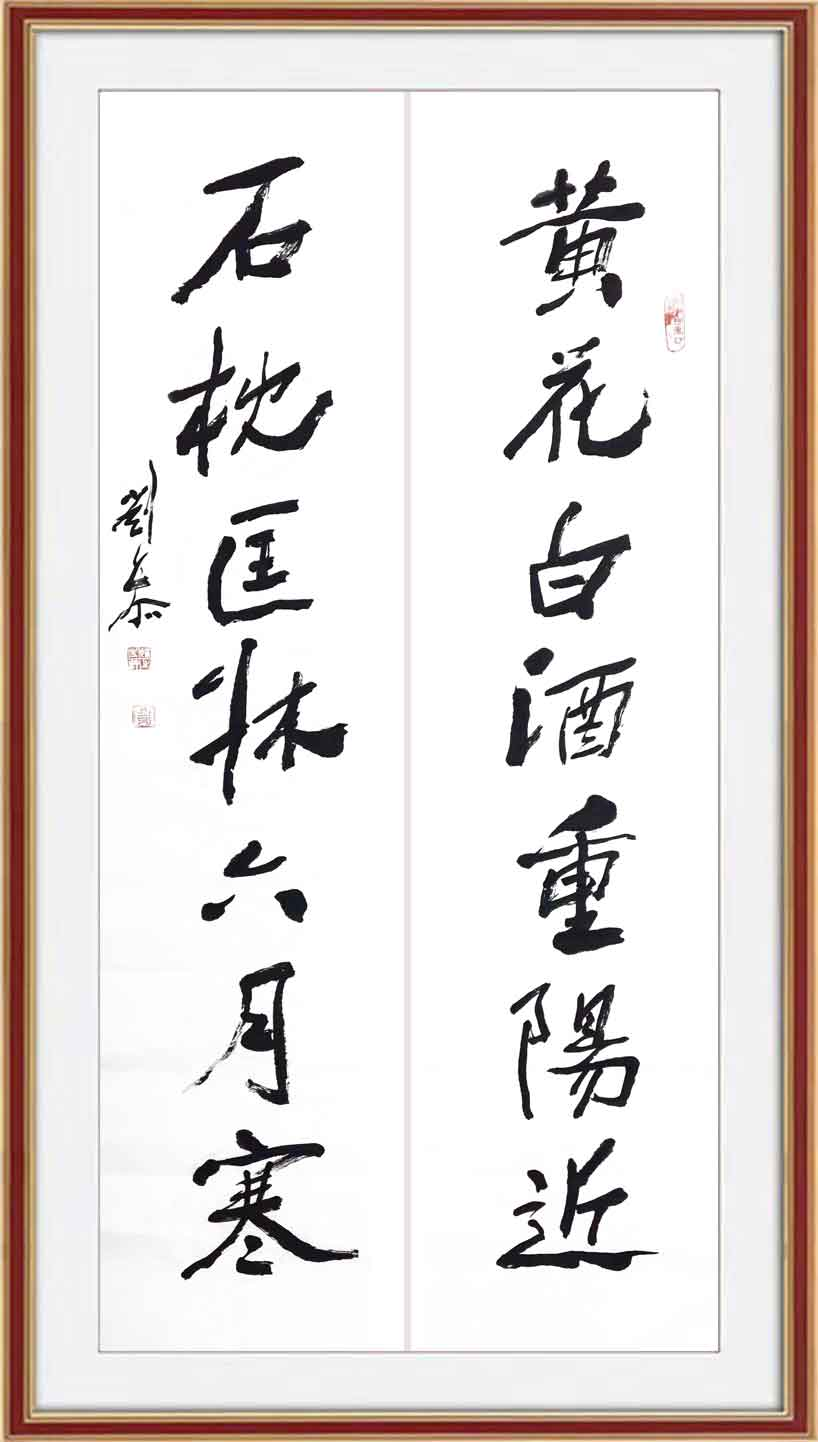 黄花白酒重陽近
石枕匡牀六月寒
劉恭